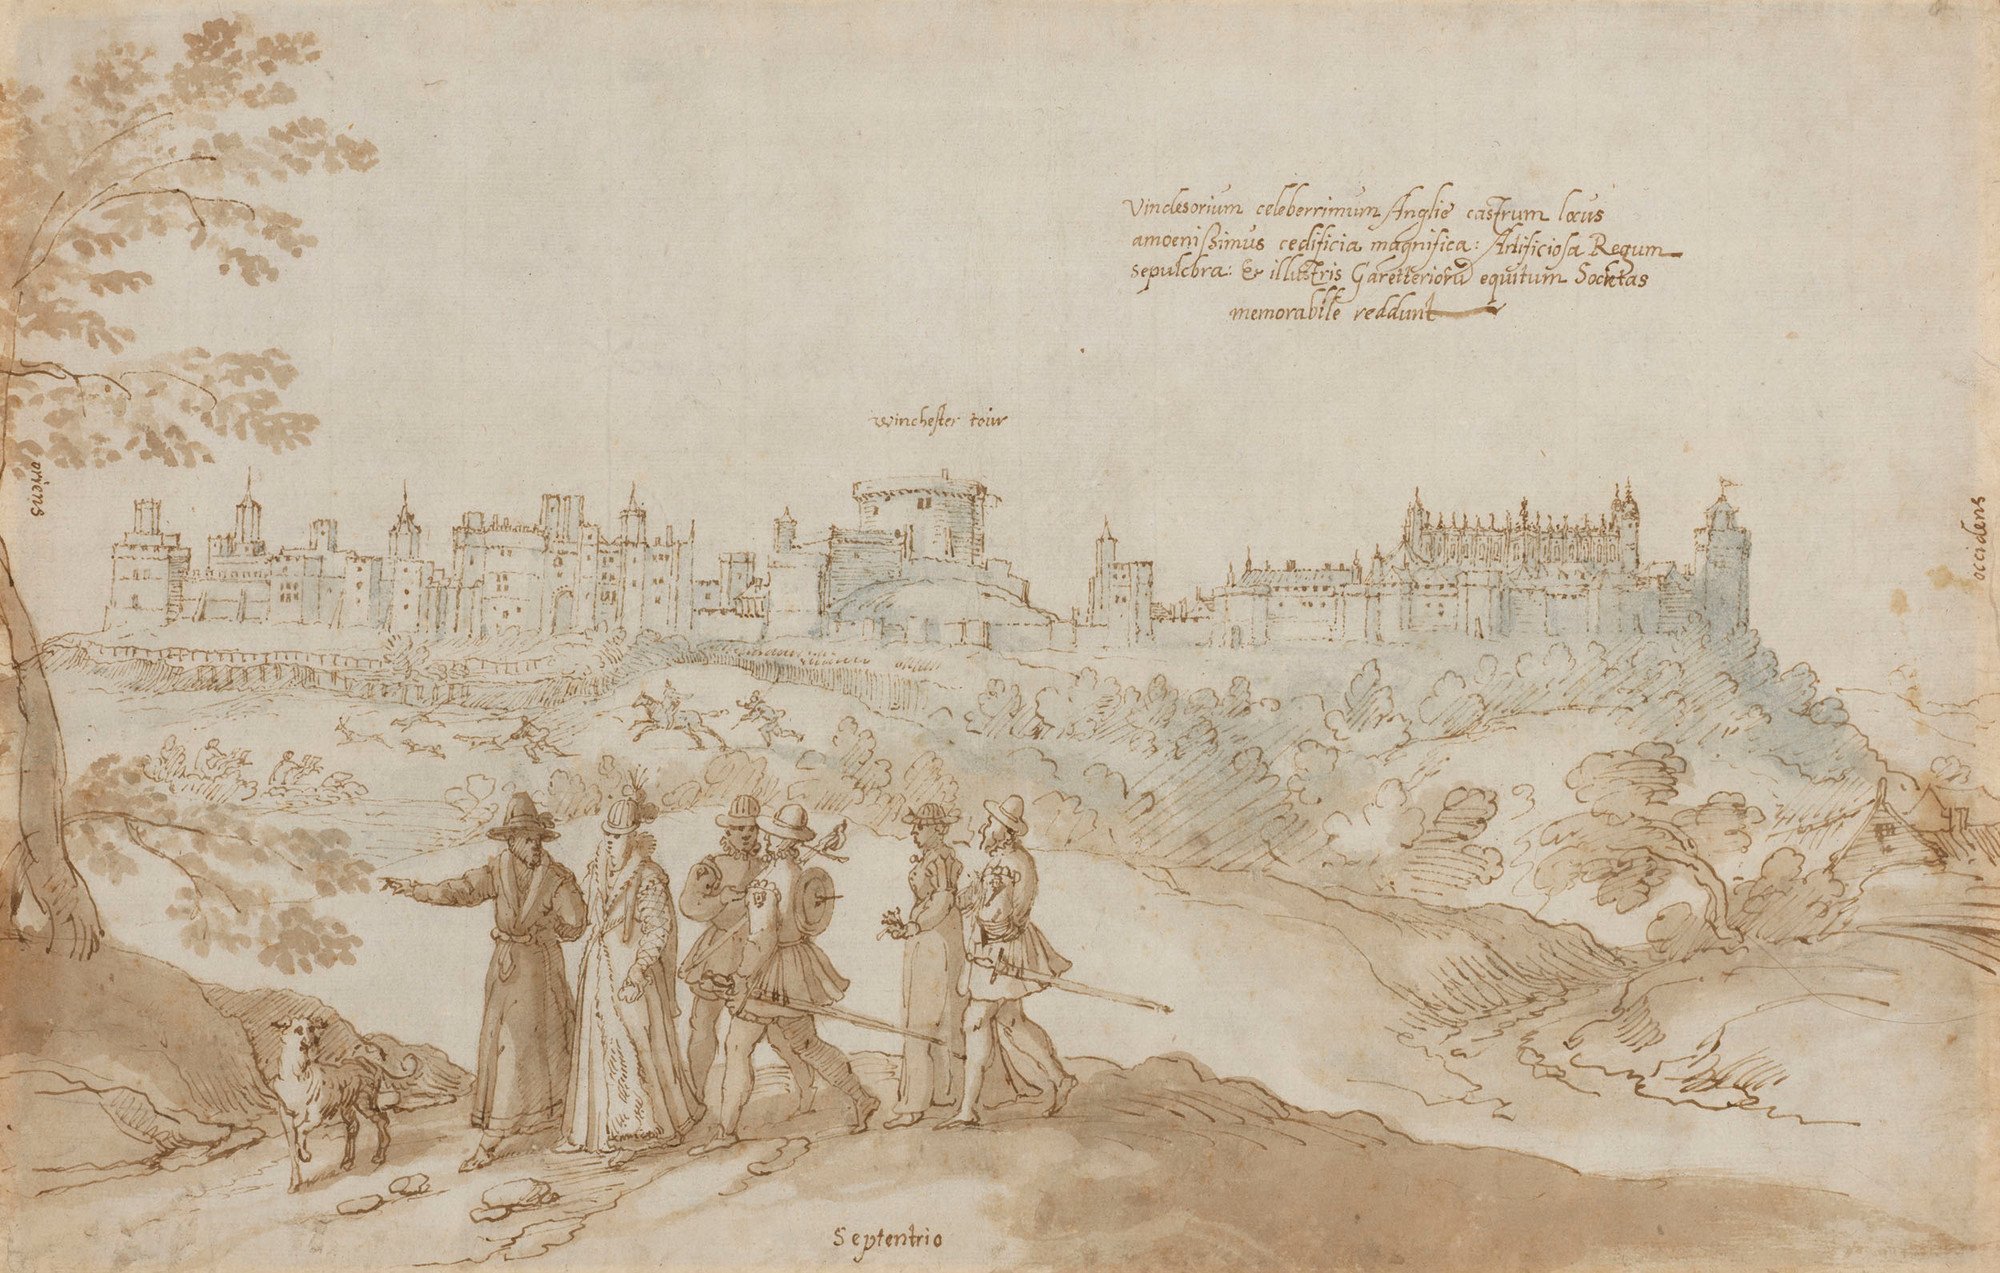 Vindesorium celeberrimum Anglie castrum locus
amoenißimus ædificia magnifica: Artificiosa Regum
sepulchra: Et illustris Garetteriorũ equitum Societas
memorabile reddunt
winchester tour
oriens
occidens
Septentrio